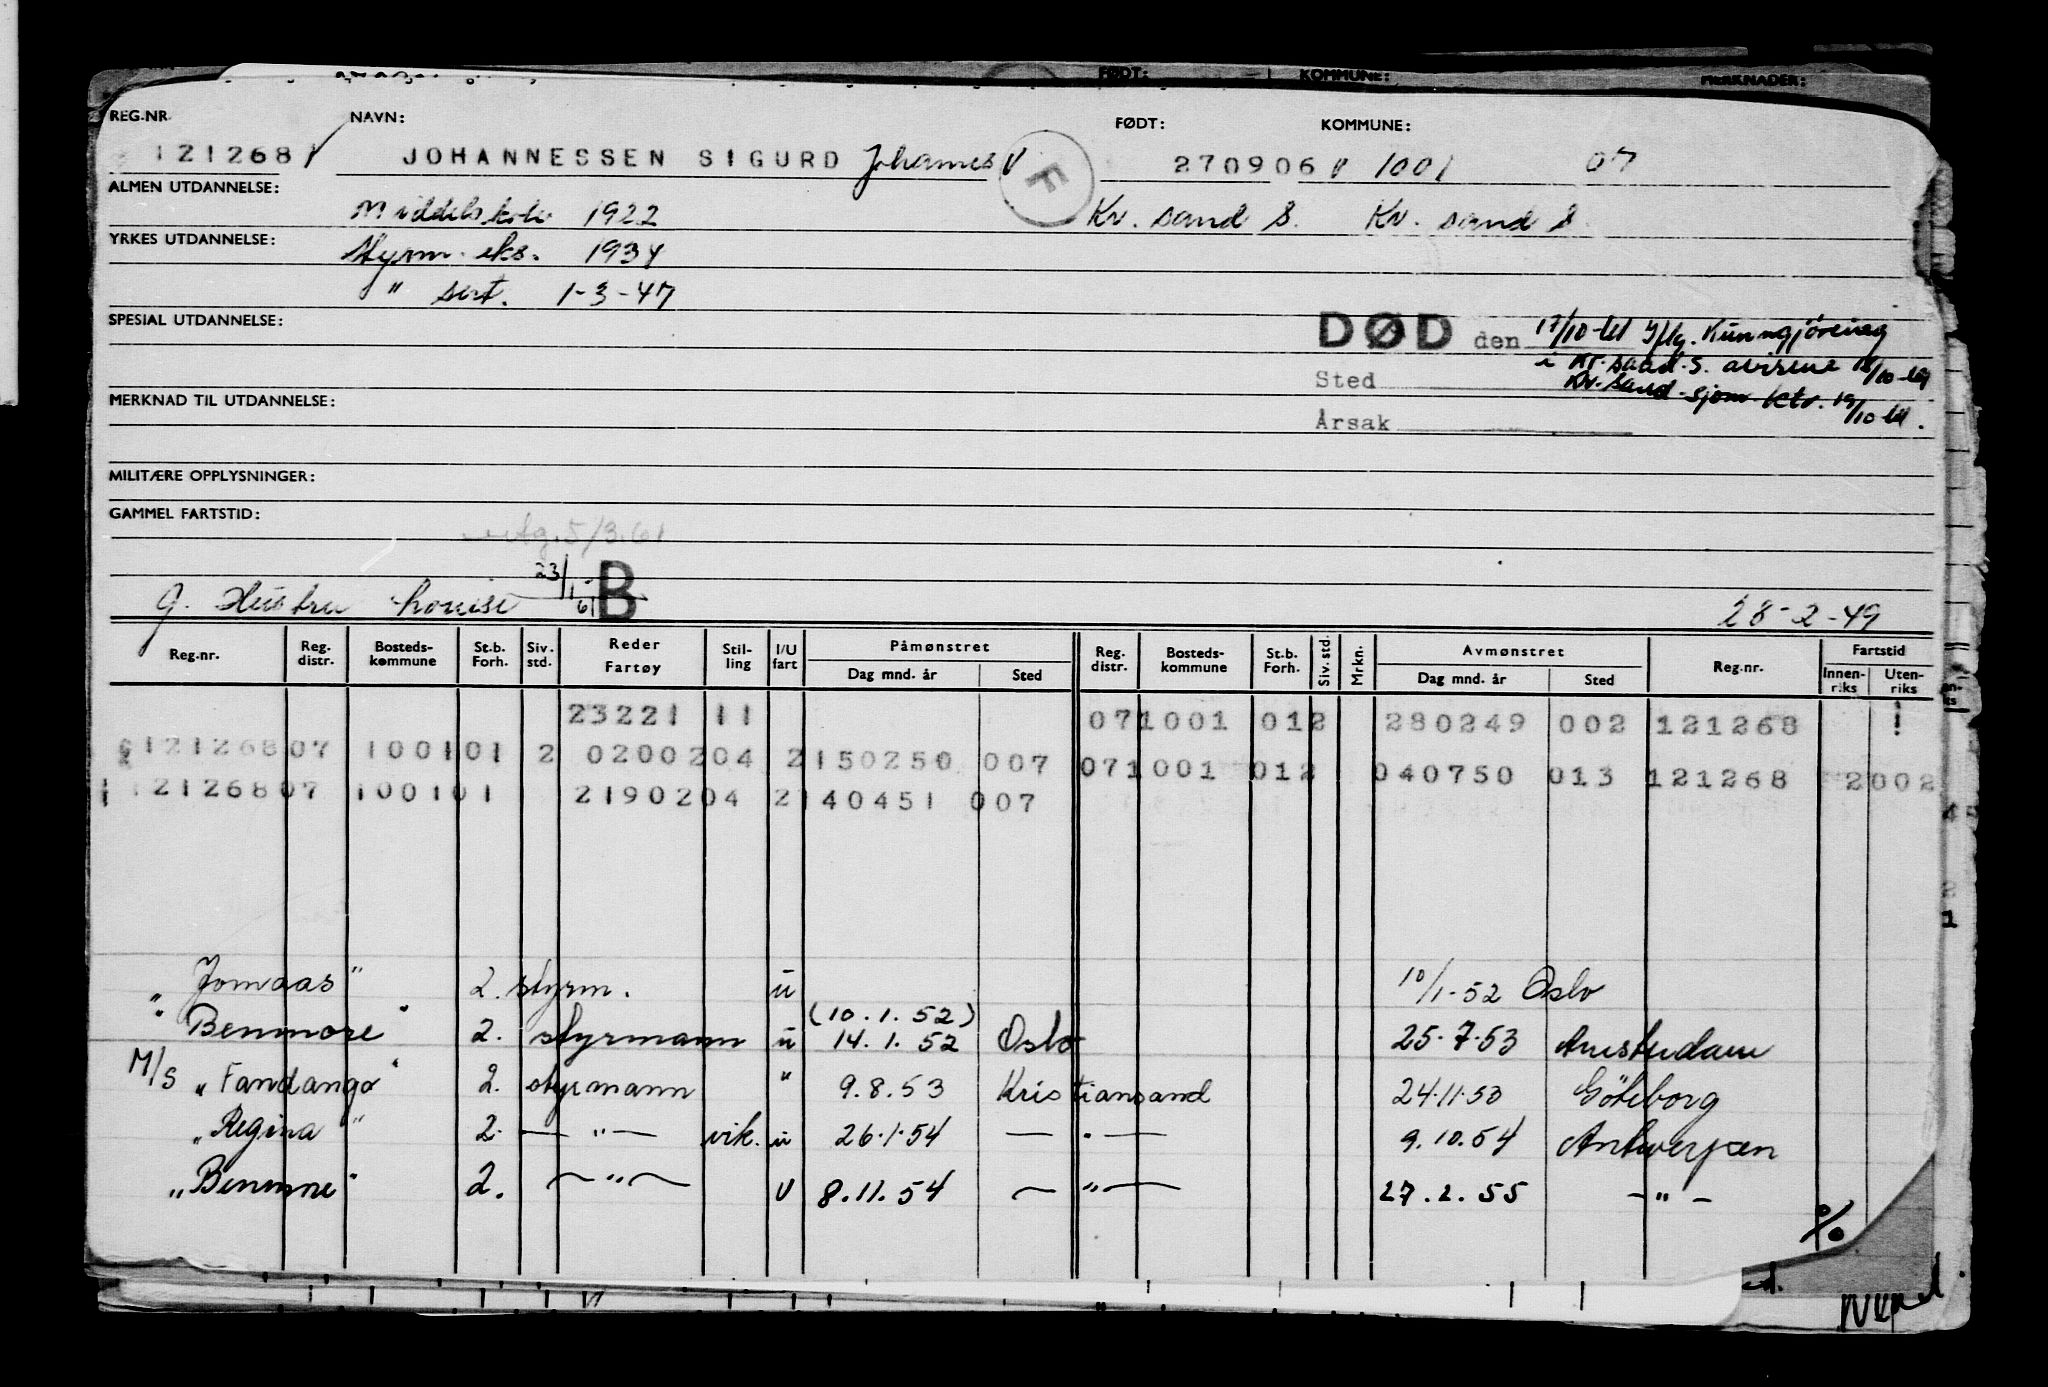 FØDT: KOMMUNE: MERKNADER:
REG.NR NAVN: FØDT: KOMMUNE:
121268 JOHANNESSEN SIGURD Johannes F 270906 1001 07
ALMEN UTDANNELSE: Middelskole 1922 Kr. sand S. Kr. sand S.
YRKES UTDANNELSE: Styrm. eks. 1934
" sert. 1-3-47
SPESIAL UTDANNELSE:
DØD den 17/10-61 iflg. Kunngjøring
i Kr. sand. S. avisene 18/10-61
Sted Kr. sand. sjøm. ktr. 19/10 61.
MERKNAD TIL UTDANNELSE:
Årsak
MILITÆRE OPPLYSNINGER:
GAMMEL FARTSTID:
5/3.61
23/1 61 B
g. Hustru Louise 28-2-49
Reg.nr. Reg. distr. Bosteds-kommune St.b. Forh. Siv. std. Reder Fartøy Stil-ling I/U fart Påmønstret Dag mnd. år Sted Reg. distr. Bosteds-kommune St.b. Forh. Siv. std. Mrkn. Avmønstret Dag mnd. år Sted Reg.nr. Fartstid Innen-riks Uten-riks
23221 11 071001 012 280249 002 121268
121268 07 1001 01 2 02002 04 2 150250 007 071001 012 040750 013 121268 2002
121268 07 1001 01 21902 04 2 140451 007
"Jomaas" 2. styrm. u 10/1-52 Oslo
(10.1.52)
"Benmore" 2. styrmann u 14.1.52 Oslo 25.7.53 Amsterdam
M/S "Fandango" 2. styrmann " 9.8.53 Kristiansand 24.11.53 Göteborg
"Regina" 2. — " — vik. u 26.1.54 — " — 9.10.54 Antwerpen
"Benmore" 2. — " — U 8.11.54 — " — 27.2.55 — " —
%